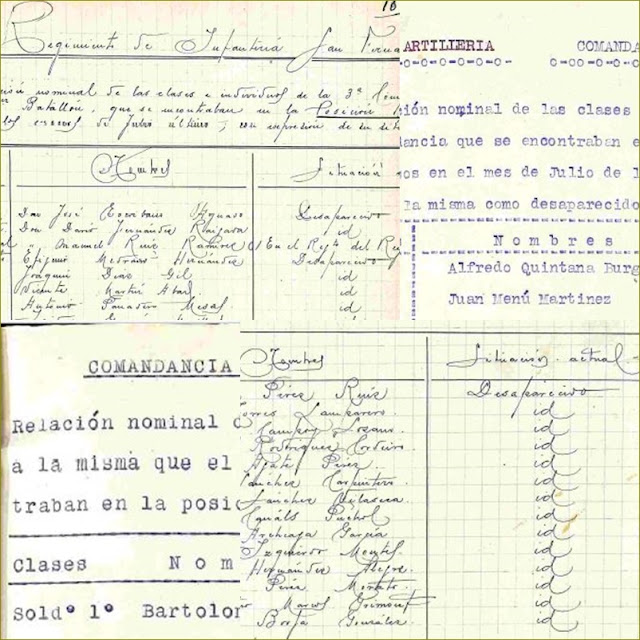 18
Regimiento de Infantería San Ferna
nominal de las clases e individuos de la 3ª
Batallón, que se encontraban en la Posición
de Julio último, con expresión de su
Nombres Situación
Don José Desaparecido
Don David Hernández id
Manuel Ruiz Ramírez En el Regto del Rey
Medrano Hernández Desaparecido
Joaquín Díaz Gil id
Vicente Martí Abad id
Antonio Panadero id
ARTILLERIA COMANDA
-o-o-o-o-o-o- o-oo-o-o-o
ión nominal de las clases
ancia que se encontraban e
os en el mes de Julio de l
la misma como desaparecido
Nombres
Alfredo Quintana Burg
Juan Menú Martinez
COMANDANCIA
Relación nominal d
a la misma que el
traban en la posic
Clases Nom
Soldº 1º Bartolom
Nombres Situación actual
Pérez Ruiz Desaparecido
Torres Lamparero id
Campoy Lozano id
Rodríguez Cordeiro id
Pérez id
Sánchez Carpintero id
Sánchez Velasco id
Puchol id
Archiaga García id
Izquierdo Montel id
Hernández Alegre id
Pérez id
Marcos id
Borja González id